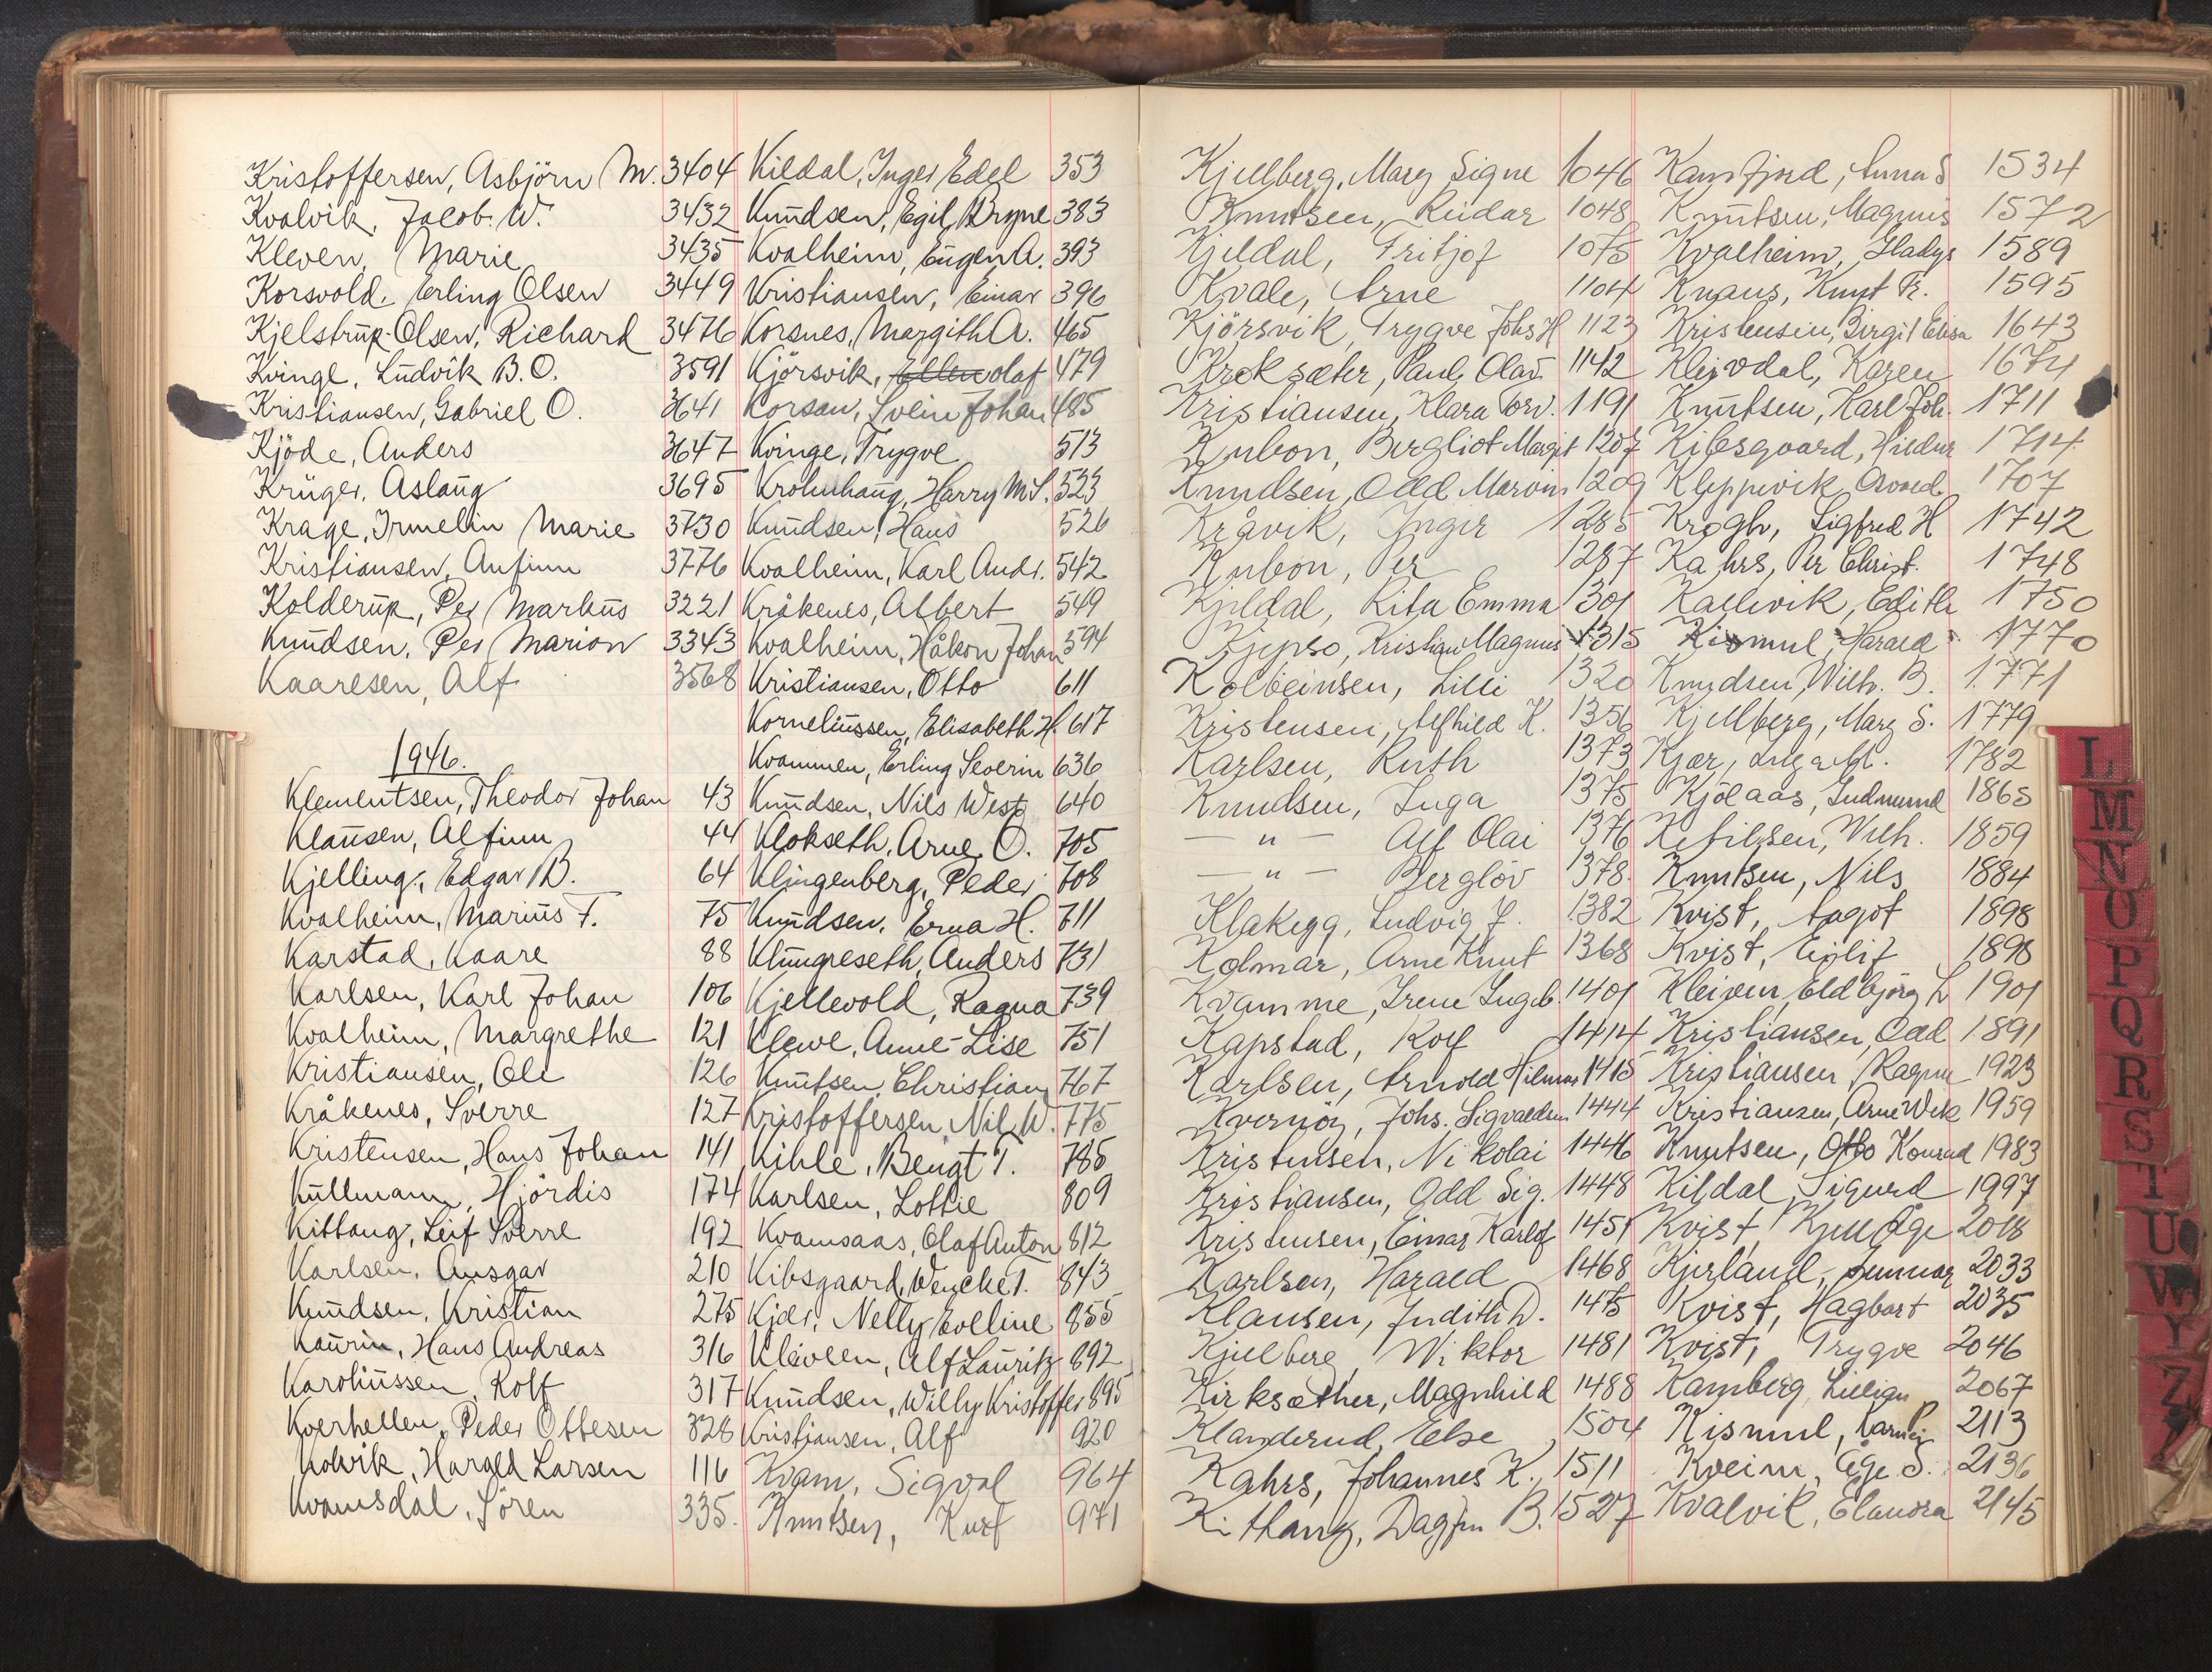 Kristoffersen, Asbjörn M. 3404
Kvalvik, Jacob W. 3432
Kleven, Marie 3435
Korsvold, Erling Olsen 3449
Kjelstrup-Olsen, Richard 3476
Kvinge, Ludvik B.O. 3591
Kristiansen, Gabriel O. 3641
Kjöde, Anders 3647
Krüger, Aslaug 3695
Krage, Irmelin Marie 3730
Kristiansen, Anfinn 3776
Kolderup, Per Markus 3221
Knudsen, Per Marion 3343
Kaaresen, Alf 3568
1946.
Klementsen, Theodor Johan 43
Klausen, Alfinn 44
Kjelling, Edgar B. 64
Kvalheim, Marius F. 75
Karstad, Kaare 88
Karlsen, Karl Johan 106
Kvalheim, Margrethe 121
Kristiansen, Ole 126
Kråkenes, Sverre 127
Kristensen, Hans Johan 141
Kullmann, Hjördis 174
Kittang, Leif Sverre 192
Karlsen, Ansgar 210
Knudsen, Kristian 275
Kaurin, Hans Andreas 316
Karoliussen, Rolf 317
Kverhellen, Peder Ottesen 328
Kolvik, Harald Larsen 116
Kvamsdal, Sören 335.
Kildal, Inger Edel 353
Knudsen, Egil Bryne 383
Kvalheim, Eugen A. 393
Kristiansen, Einar 396
Korsnes, Margith A. 465
Kjörsvik, Ellen Olaf 479
Korsan, Svein Johan 485
Kvinge, Trygve 513
Krohnhaug, Harry M.S. 523
Knudsen, Hans 526
Kvalheim, Karl Andr. 542
Kråkenes, Albert 549
Kvalheim, Håkon Johan 594
Kristiansen, Otto 611
Korneliussen, Elisabeth H. 617
Kvammen, Erling Severin 636
Knudsen, Nils West 640
Klokseth, Arne O. 705
Klingenberg, Peder 708
Knudsen, Erna H. 711
Klungreseth, Anders 731
Kjellevold, Ragna 739
Klewe, Anne-Lise 751
Knutsen, Christian 767
Kristoffersen, Nil. W. 775
Kihle, Bengt T. 785
Karlsen, Lottie 809
Kvamsaas, Olaf Anton 812
Kibsgaard, Wenche T. 843
Kjær, Nelly Eveline 855
Kleiveen, Alf Lauritz 892
Knudsen, Willy Kristoffer 895
Kristiansen, Alf 920
Kvam, Sigval 964
Knutsen, Kurt 971
Kjellberg, Mary Signe 1046
Knutsen, Reidar 1048
Kjeldal, Fritjof 1075
Kvale, Arne 1104
Kjörsvik, Trygve Johs H 1123
Kroksæter, Paul Olav 1142
Kristiansen, Klara Torv. 1191
Kubon, Bergliot Margit 1207
Knudsen, Odd Marom 1209
Kråvik, Inger 1285
Kubon, Per 1287
Kjeldal, Rita Emma 1301
Kjepso, Kristian Magnus 1315
Kolbeinsen, Lilli 1320
Kristensen, Alfhild K. 1356
Karlsen, Ruth 1373
Knudsen, Inga 1375
— " — Alf Olai 1376
— " — Berglöv 1378.
Klakegg, Ludvig J. 1382
Kolmar, Arne Knut 1368
Kvamme, Irene Ingeb. 1401
Kapstad, Rolf 1414
Karlsen, Arnold Hilmar 1415
Kvernöy, Johs. Sigvaldsen 1444
Kristensen, Nikolai 1446
Kristiansen, Odd Sig. 1448
Kristensen, Einar Karlof 1451
Karlsen, Harald 1468
Klausen, Judith D. 1475
Kjelberg, Wiktor 1481
Kirksæther, Magnhild 1488
Klanderud, Else 1504
Kahrs, Johannes K. 1511
Kithang, Dagfin B. 1527
Kamfjord, Anna S 1534
Knutsen, Magnus 1572
Kvalheim, Gladys 1589
Knaus, Knut Fr. 1595
Kristensen, Birgit Elisa 1643
Kleivdal, Karen 1674
Knutsen, Karl Joh. 1711
Kibsgaard, Hildur 1714
Kleppevik, Osvald 1707
Krogh, Sigfred H 1742
Kahrs, Per Christ. 1748
Kallevik, Edith 1750
Kismul, Harald 1770
Knudsen, Wilh. B. 1771
Kjellberg, Mary S. 1779
Kjær, Inga M. 1782
Kjölaas, Gudmund 1865
Ketilsen, Wilh. 1859
Knutsen, Nils 1884
Kvist, Aagot 1898
Kvist, Eilif 1898
Kleiven, Eldbjörg L 1901
Kristiansen, Odd 1891
Kristiansen, Ragnv 1923
Kristiansen, Arne Wik 1959
Knutsen, Otto Konrad 1983
Kildal, Sigurd 1997
Kvist, Kjell Åge 2018
Kjerland, Gunnar 2033
Kvist, Hagbart 2035
Kvist, Trygve 2046
Kamberg, Lillian 2067
Kismul, Karin 2113
Kveim, Åge S. 2136
Kvalvik, Elanora 2145
L
M
N
O
P
Q
R
S
T
U
W
Y
Z